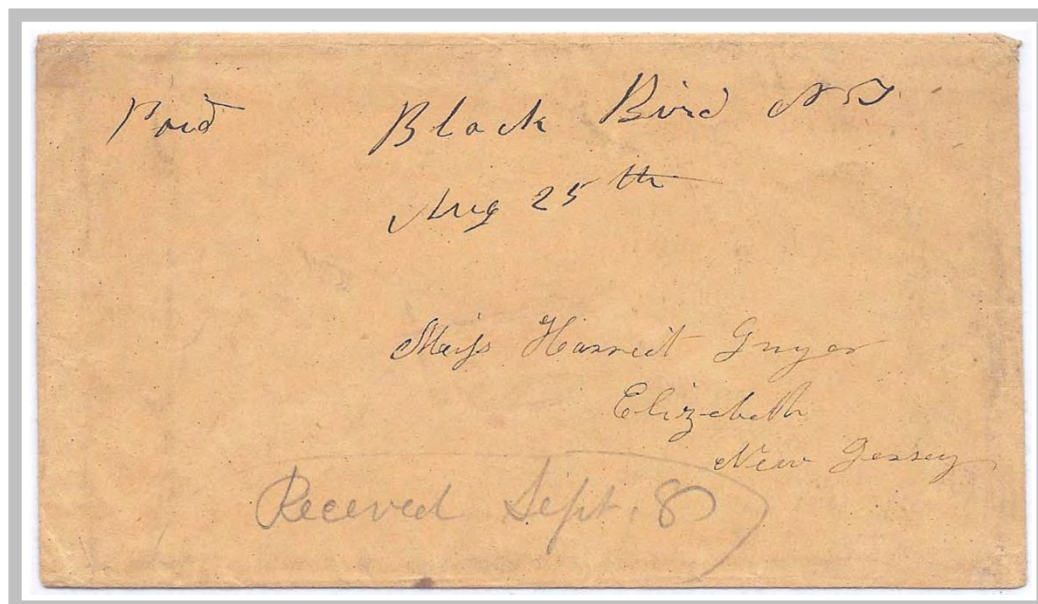 Paid Black Bird N T
Aug 25th
Miss Harriet Guyer
Elizabeth
New Jersey
Received Sept. 8